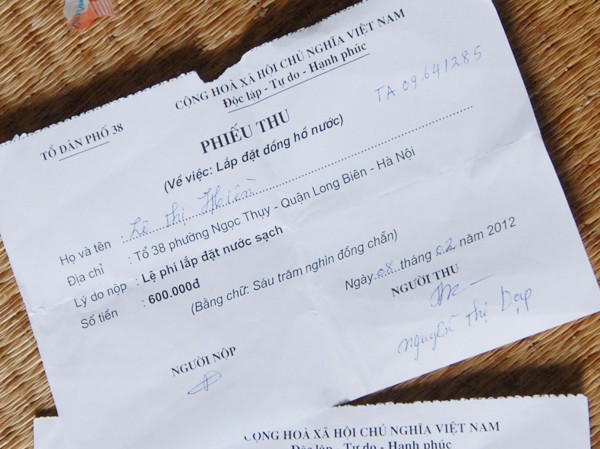 CỘNG HOÀ XÃ HỘI CHỦ NGHĨA VIỆT NAM
Độc lập - Tự do - Hạnh phúc
TỔ DÂN PHỐ 38
TA 09641285
PHIẾU THU
(Về việc: Lắp đặt đồng hồ nước)
Họ và tên : Lê Thị Hiền
Địa chỉ : Tổ 38 phường Ngọc Thụy - Quận Long Biên - Hà Nội
Lý do nộp : Lệ phí lắp dặt nước sạch
Số tiền : 600.000đ (Bằng chữ: Sáu trăm nghìn đồng chẵn)
Ngày 08 tháng 02 năm 2012
NGƯỜI NỘP
NGƯỜI THU
Nguyễn Thị Dẹp
CỘNG HOÀ XÃ HỘI CHỦ NGHĨA VIỆT NAM
Độc lập - Tự do - Hạnh phúc